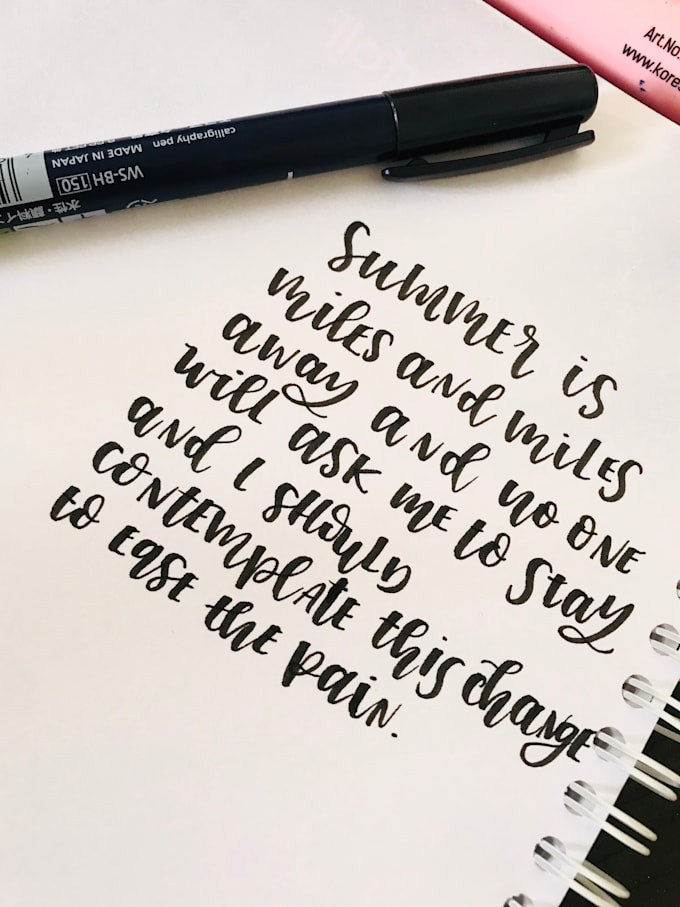 Art.No.
www.korea
calligraphy pen
MADE IN JAPAN
WS-BH 150
水性・顔料イン
Summer is
miles and miles
away and no one
will ask me to stay
and I should
contemplate this change
to ease the pain.